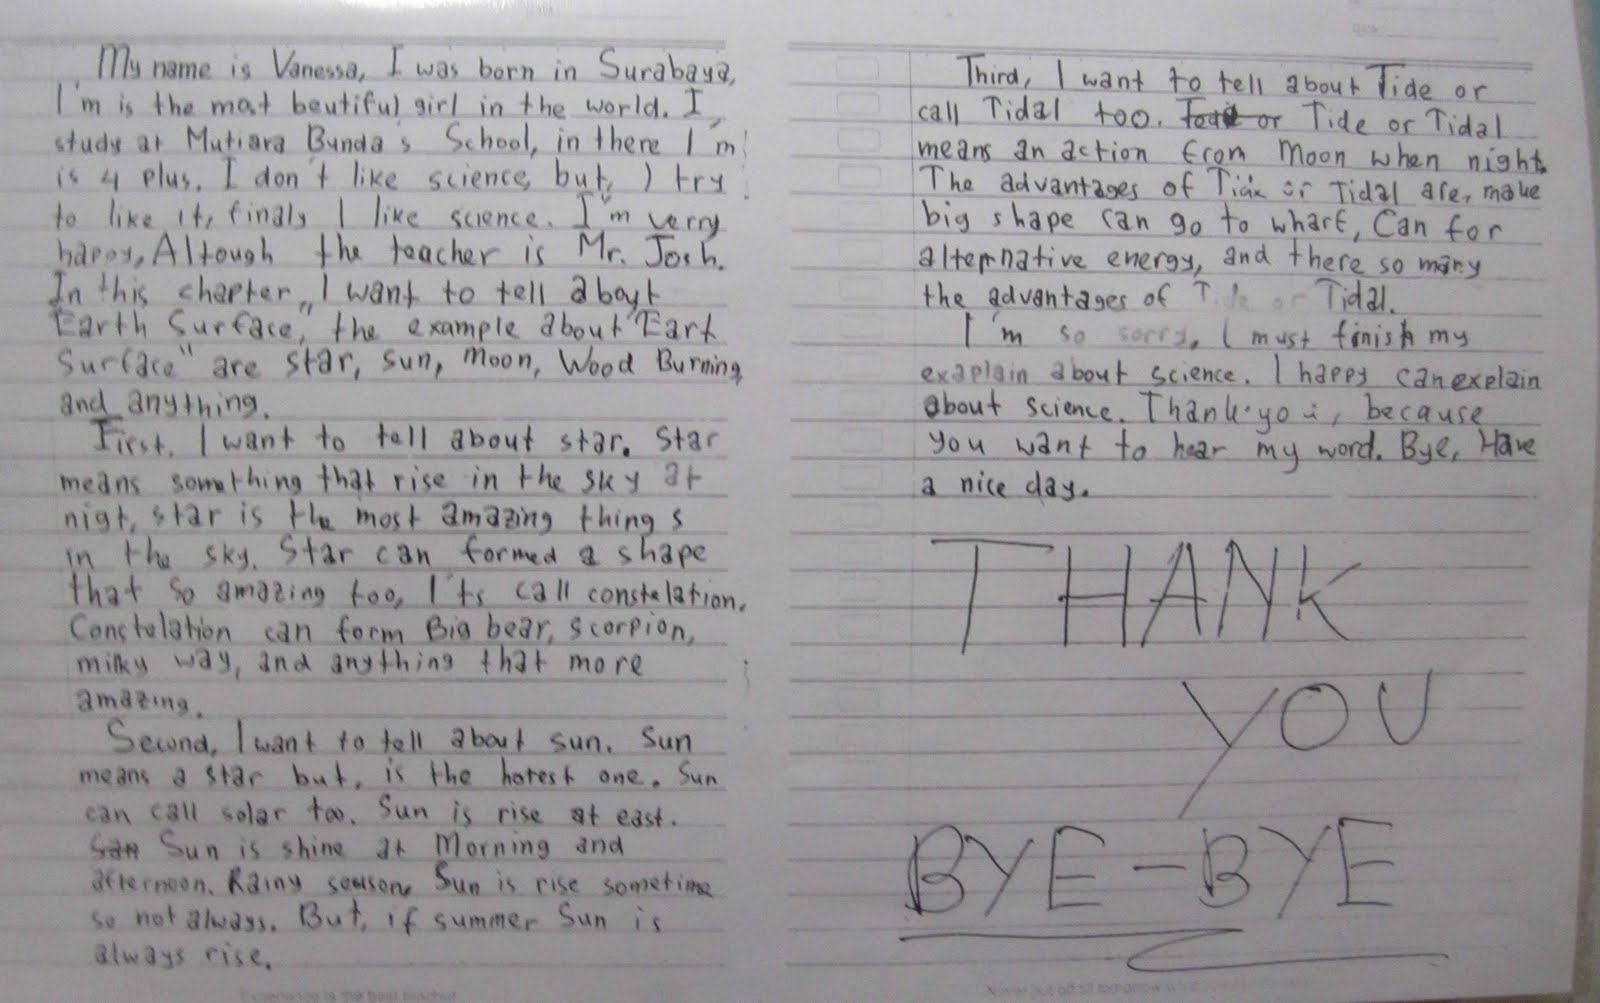 My name is Vanessa, I was born in Surabaya,
I'm is the most beutiful girl in the world. I
study at Mutiara Bunda's School, in there I'm
is 4 plus. I don't like science, but, I try
to like it, finaly I like science. I'm verry
happy, Altough the teacher is Mr. Josh.
In this chapter, I want to tell about
"Earth Surface," the example about "Eart
Surface" are star, sun, moon, Wood Burning,
and anything.
First, I want to tell about star. Star
means something that rise in the sky at
nigt, star is the most amazing things
in the sky. Star can formed a shape
that so amazing too, I'ts call constelation.
Constelation can form Big bear, scorpion,
milky way, and anything that more
amazing.
Second, I want to tell about sun. Sun
means a star but, is the hotest one. Sun
can call solar too. Sun is rise at east.
San Sun is shine at Morning and
afternoon. Rainy season, Sun is rise sometime
so not always. But, if summer Sun is
always rise.
Experience is the best teacher
Third, I want to tell about Tide or
call Tidal too. or Tide or Tidal
means an action from Moon when night.
The advantages of Tide or Tidal are, make
big shape can go to wharf, Can for
alternative energy, and there so many
the advantages of Tide or Tidal.
I'm so sorry, I must finish my
exaplain about science. I happy can explain
about science. Thank you, because
you want to hear my word. Bye, Have
a nice day.
THANK
YOU
BYE-BYE
Never put off till tomorrow what